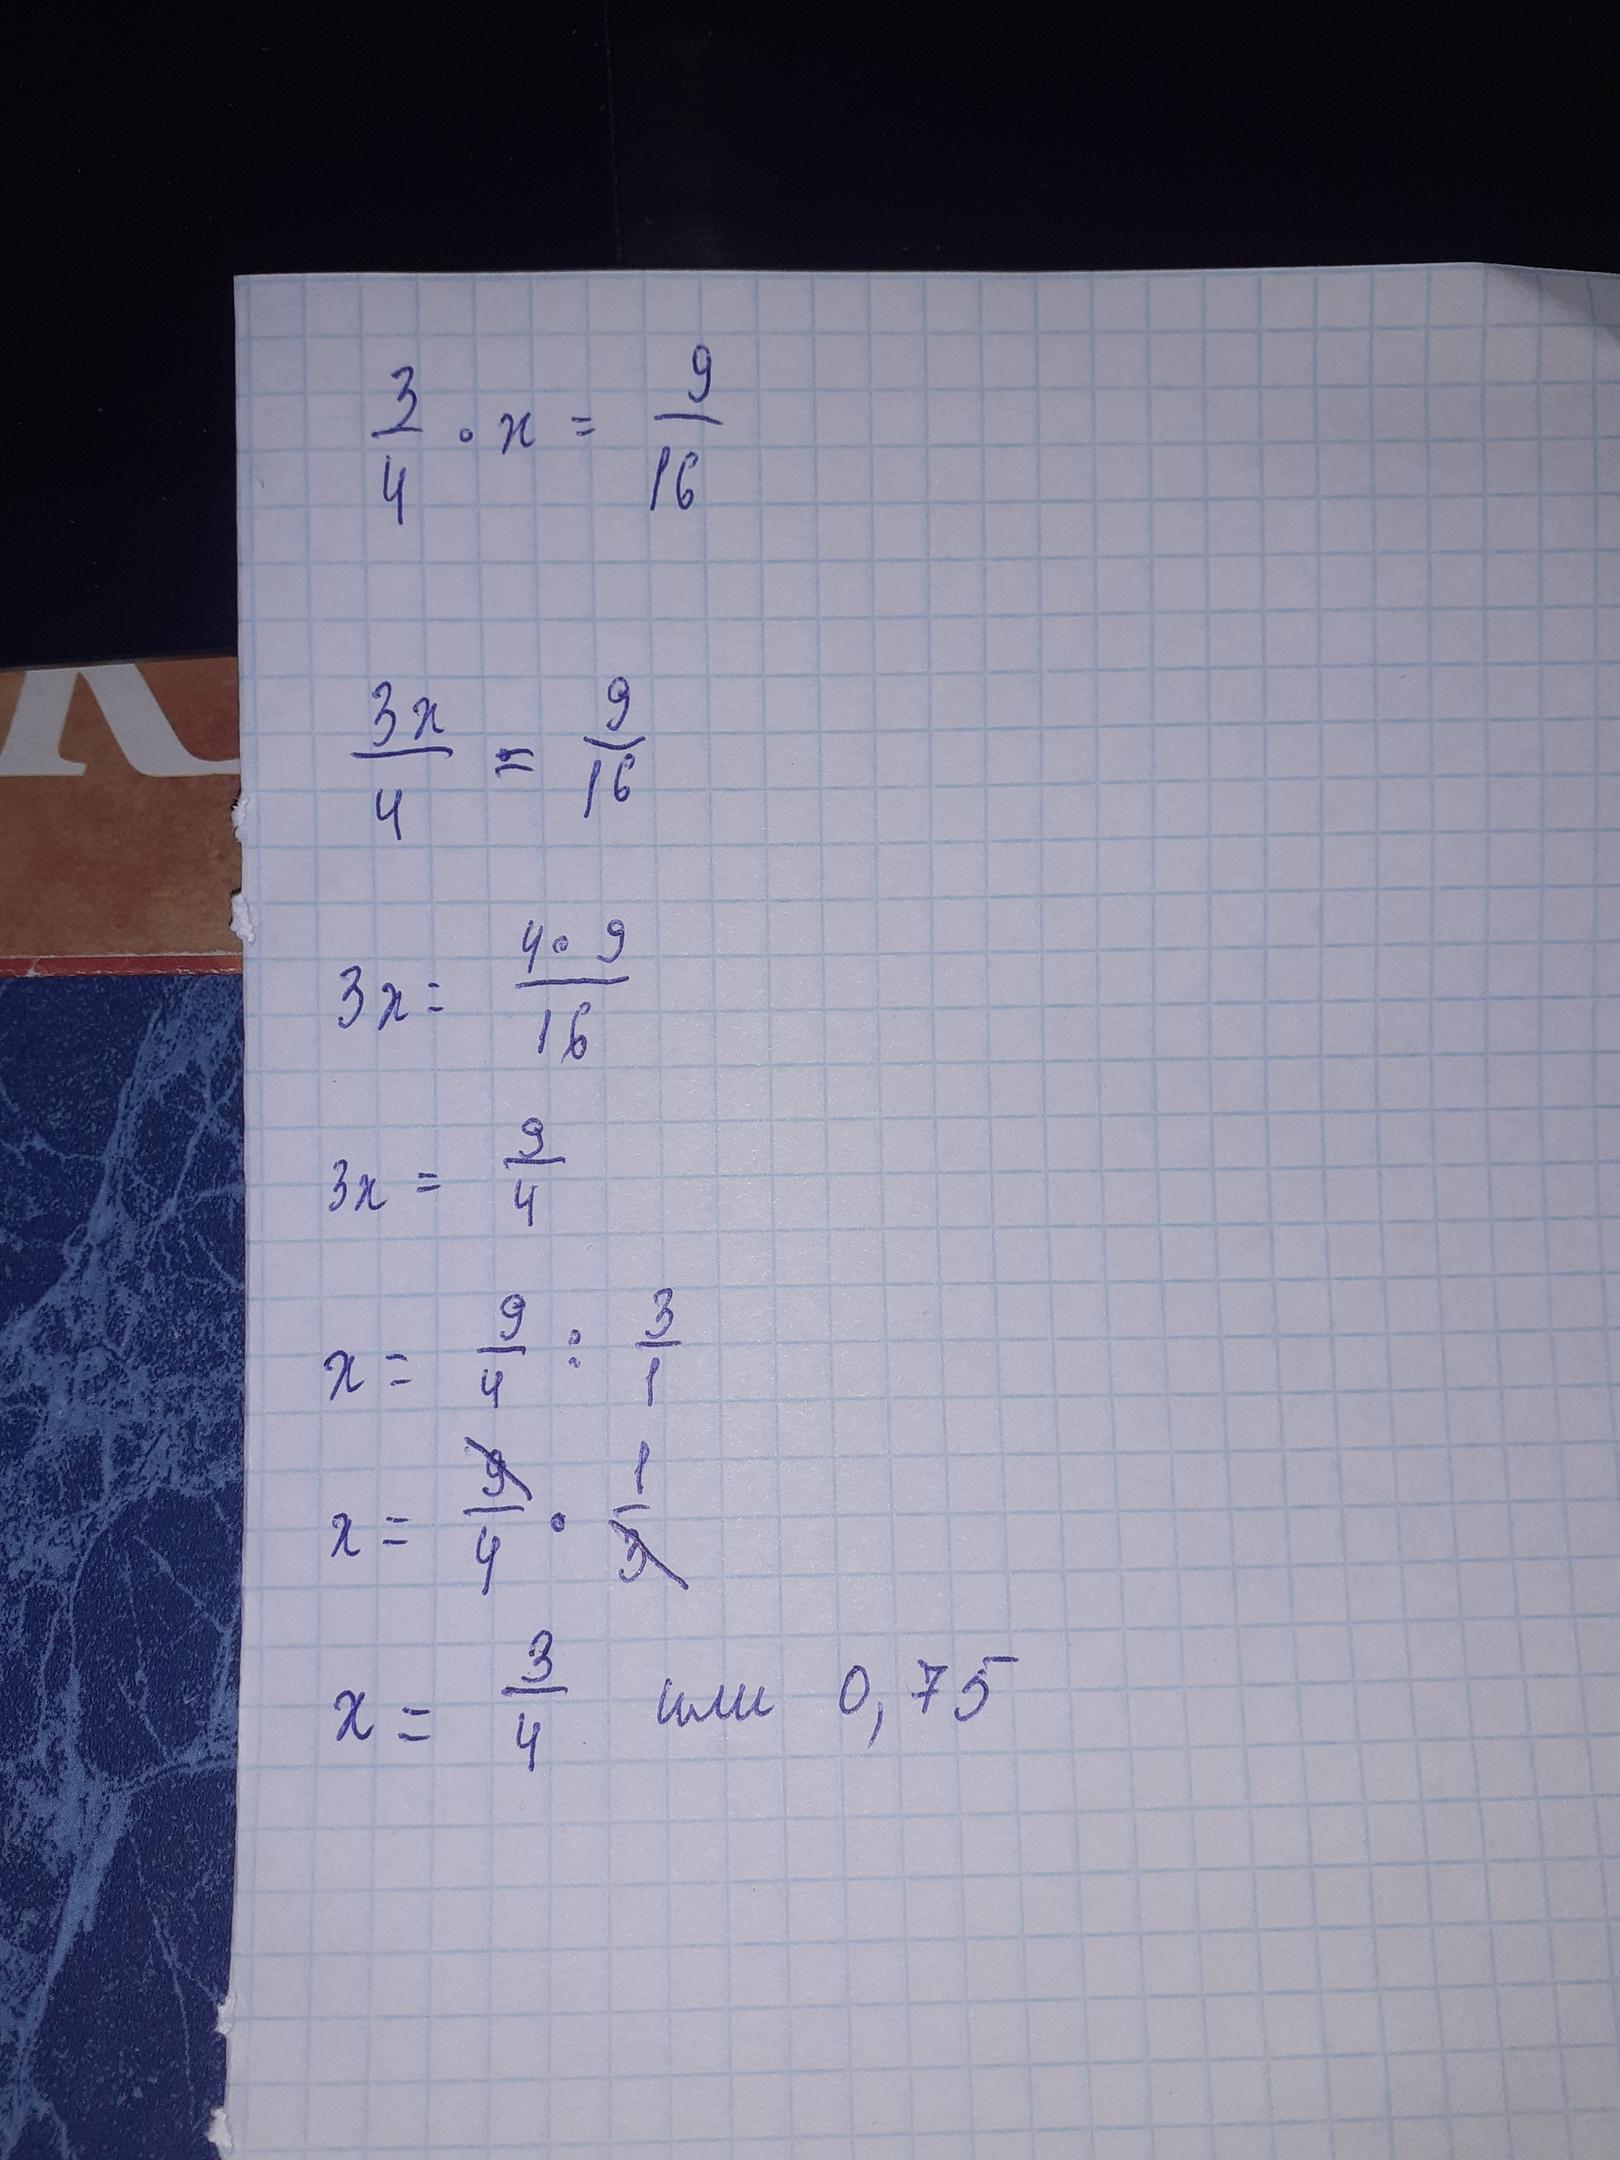 3/4 · x = 9/16
3x/4 = 9/16
3x = 4·9/16
3x = 9/4
x = 9/4 : 3/1
x = 9/4 · 1/3
x = 3/4 или 0,75